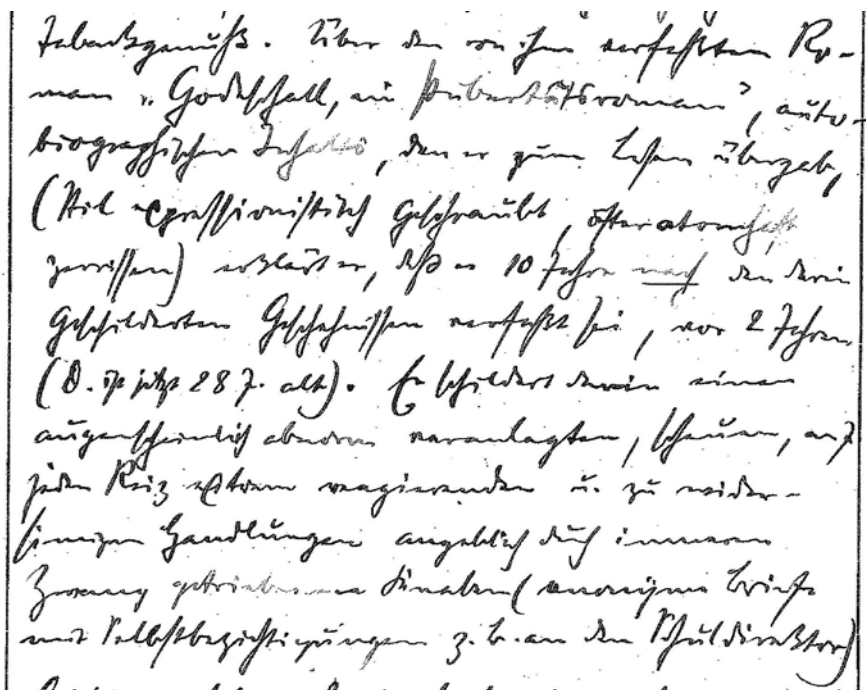 Tabakgenuß. Über den von ihm verfaßten Ro-
man „Godeschall, ein Pubertätsroman", auto-
biographischen Inhalts, den er zum Lesen übergab,
(Stil expressionistisch geschraubt, öfter atemhaft
zerrissen) erklärt er, daß er 10 Jahre nach den darin
geschilderten Geschehnissen verfaßt sei, vor 2 Jahren
(D. ist jetzt 28 J. alt). Er schildert darin einen
augenscheinlich abnorm veranlagten, scheuen, auf
jeden Reiz extrem reagierenden u. zu wider-
sinnigen Handlungen angeblich durch inneren
Zwang getriebenen Knaben (anonyme Briefe
mit Selbstbezichtigungen z. b. an den Schuldirektor)